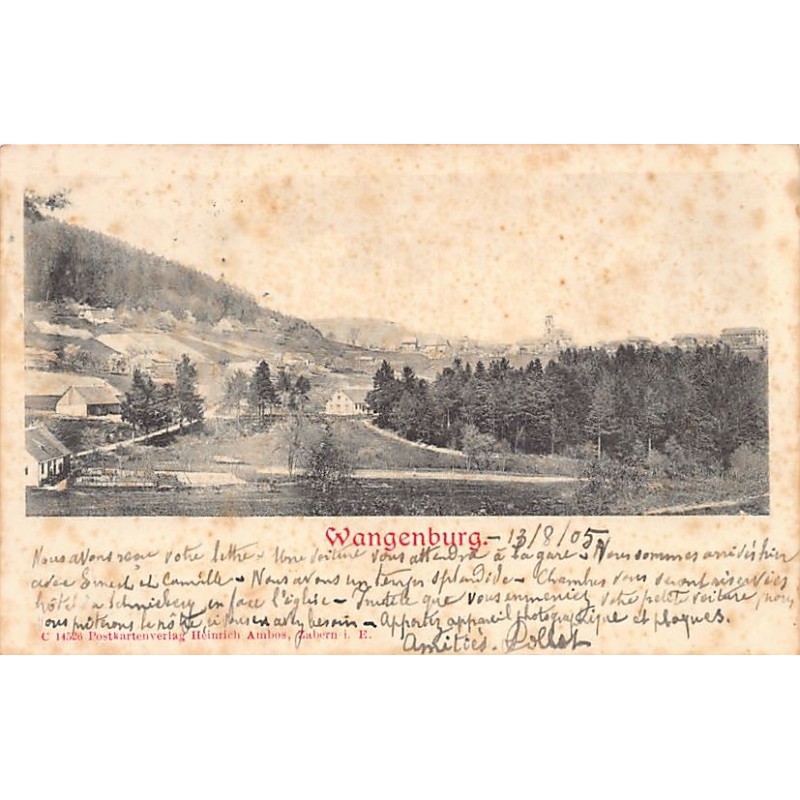 Wangenburg. - 13/8/05
Nous avons reçu votre lettre - Une voiture vous attendra à la gare - Nous sommes arrivés hier
avec Ernest et Camille - Nous avons un temps splendide - Chambres vous seront réservées
hôtel Schneeberg en face l'église - Inutile que vous emmeniez votre petite voiture, nous
vous prêterons le nôtre, si vous en avez besoin - Apportez appareil photographique et plaques.
C 14526 Postkartenverlag Heinrich Ambos, Zabern i. E.
Amitiés. Collet